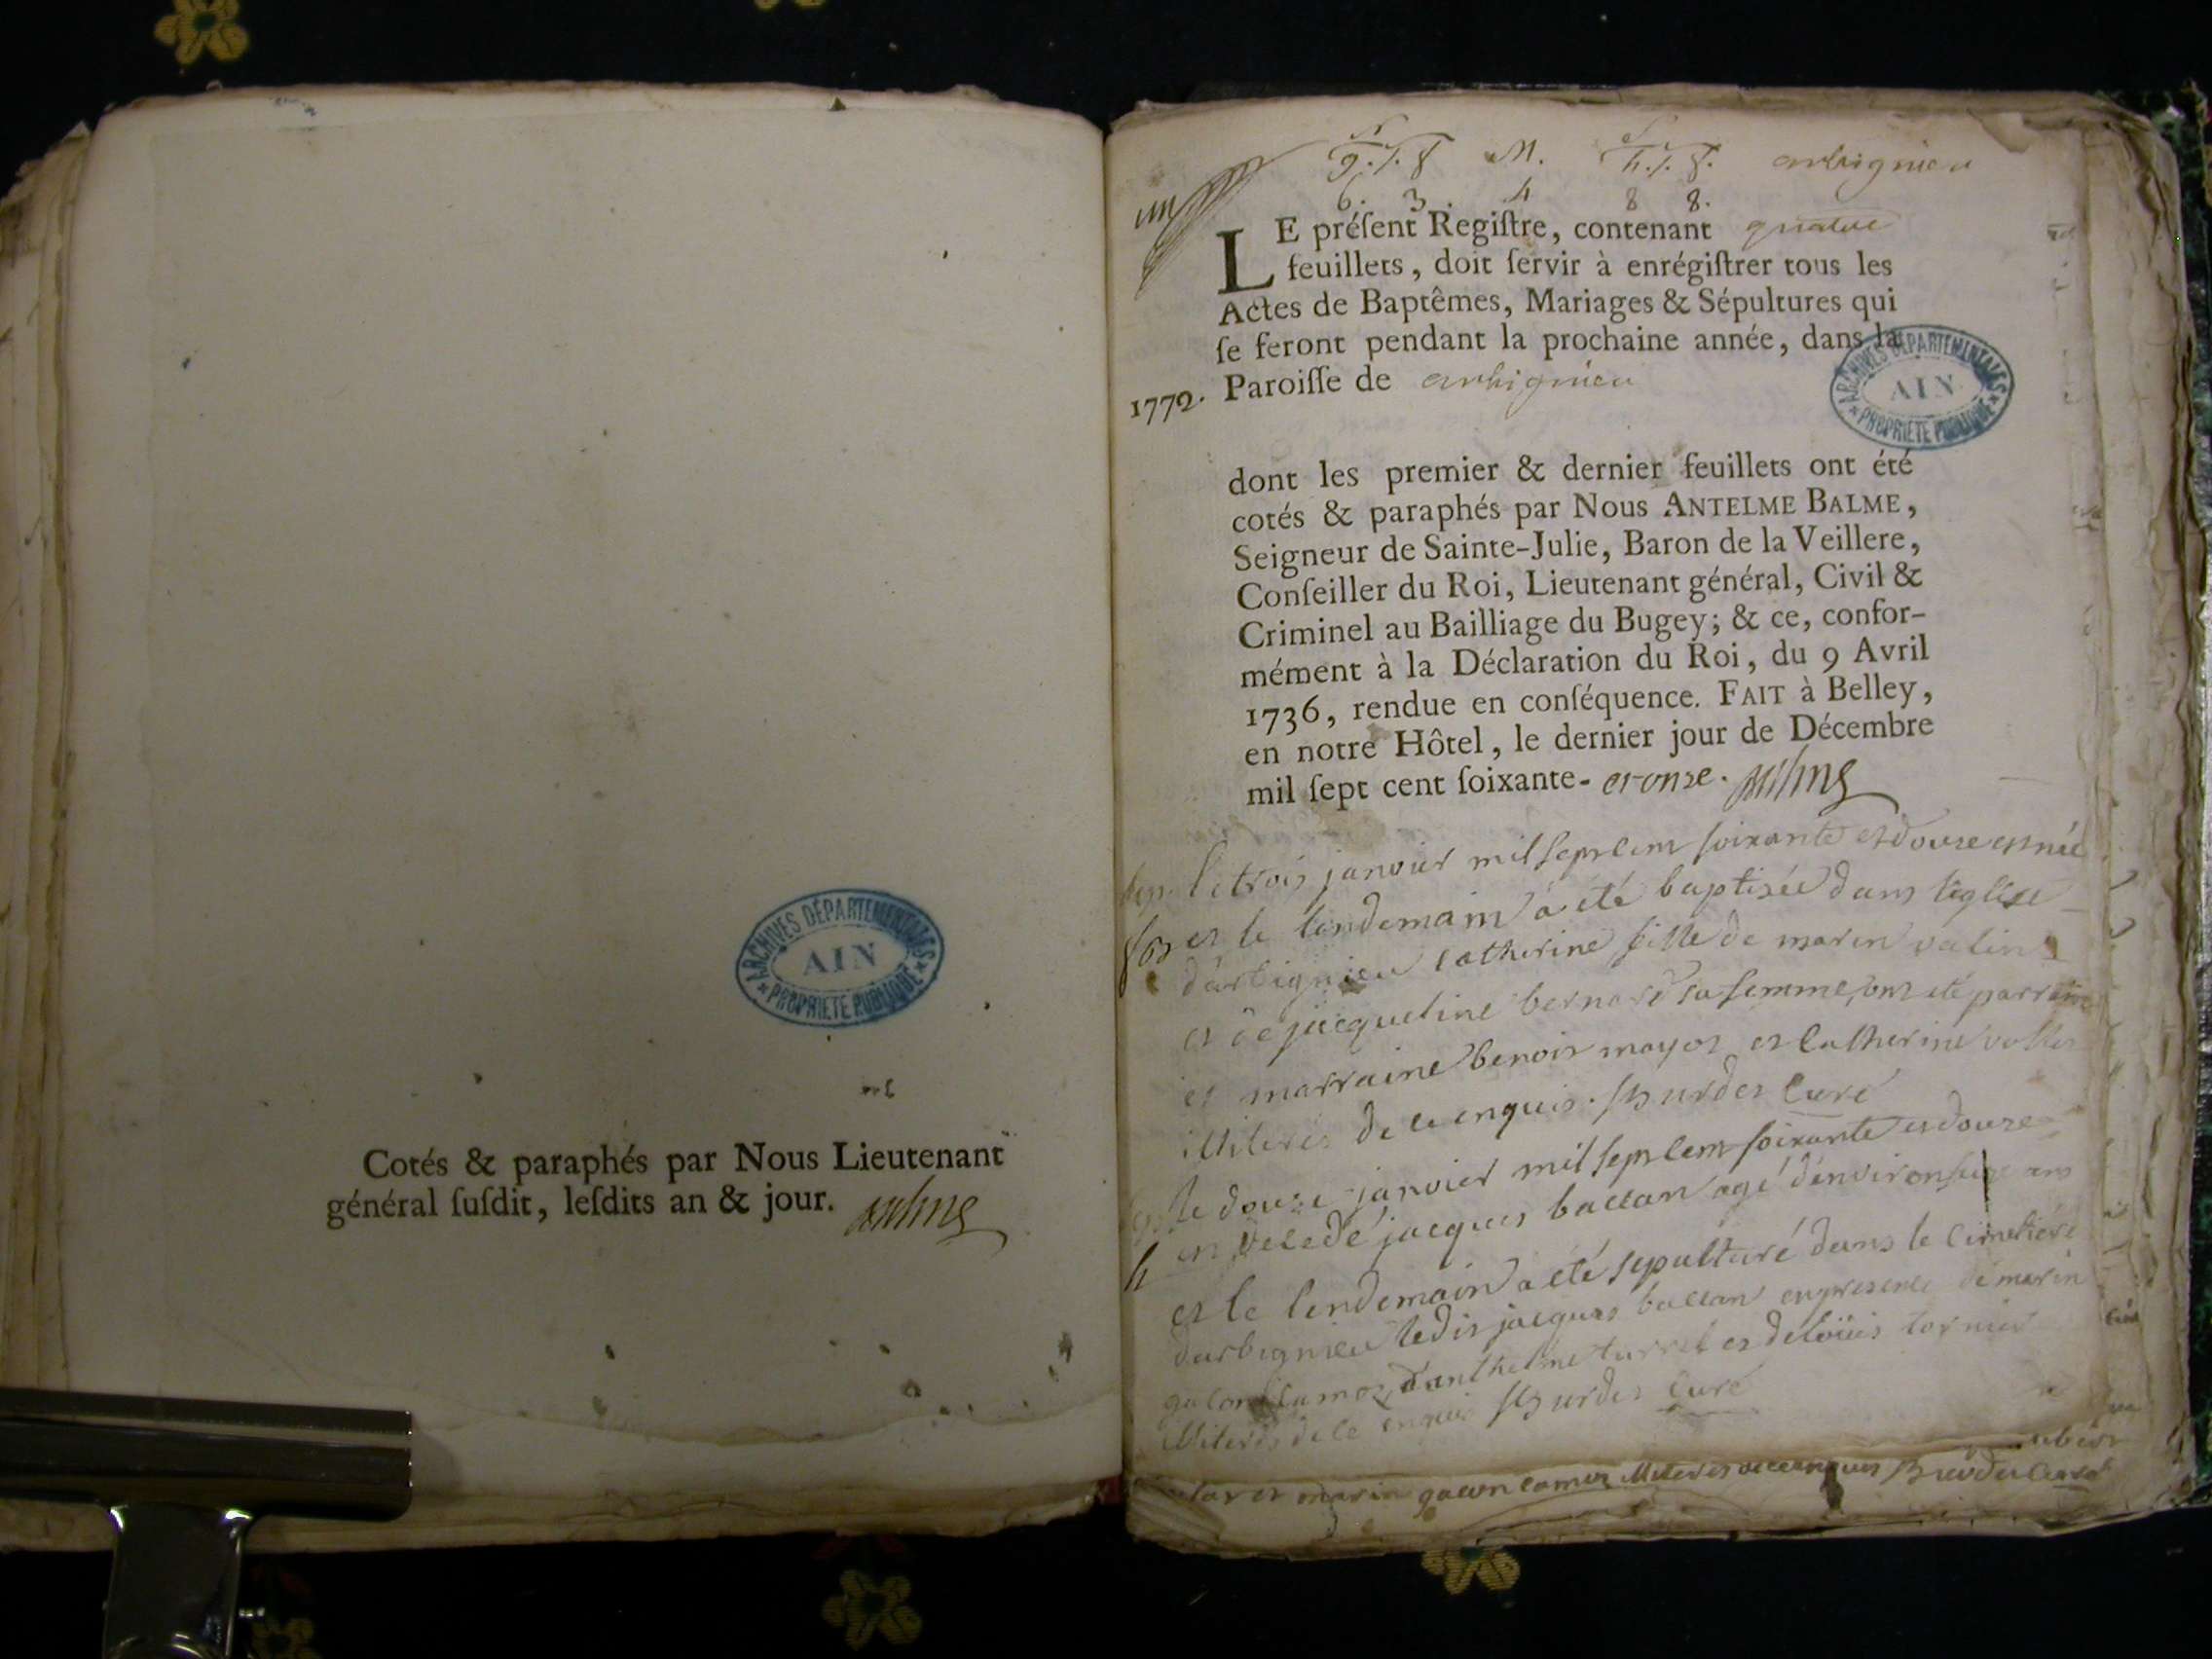 Cotés & paraphés par Nous Lieutenant
général ſuſdit, leſdits an & jour.
ARCHIVES DÉPARTEMENTALES
AIN
PROPRIÉTÉ PUBLIQUE
g. f. g M. h. f. g. arbignieu
6. 3. 4 8 8.
LE préſent Regiſtre, contenant quatre
feuillets, doit ſervir à enrégiſtrer tous les
Actes de Baptêmes, Mariages & Sépultures qui
ſe feront pendant la prochaine année, dans la
1772. Paroiſſe de arbignieu
ARCHIVES DÉPARTEMENTALES
AIN
PROPRIÉTÉ PUBLIQUE
dont les premier & dernier feuillets ont été
cotés & paraphés par Nous ANTELME BALME,
Seigneur de Sainte-Julie, Baron de la Veillere,
Conſeiller du Roi, Lieutenant général, Civil &
Criminel au Bailliage du Bugey; & ce, confor-
mément à la Déclaration du Roi, du 9 Avril
1736, rendue en conſéquence. FAIT à Belley,
en notre Hôtel, le dernier jour de Décembre
mil ſept cent ſoixante- et onze.
le trois janvier mil sept cent soixante et douze est née
et le lendemain a été baptisée dans léglise
darbignieu catherine fille de marin
et de jacqueline bernard sa femme, ont été parrain
et marraine benoit mayot et catherine
illiterés de ce enquis. Burdet curé
le douze janvier mil sept cent soixante et douze
est décédé jacques ballan agé d'environ ans
et le lendemain a été sepulturé dans le cimetière
darbignieu ledit jacques ballan en presence de marin
d'anthelme turrel et de loüis tornier
illiterés de ce enquis Burdet curé
et marin illiterés de ce enquis Burdet curé